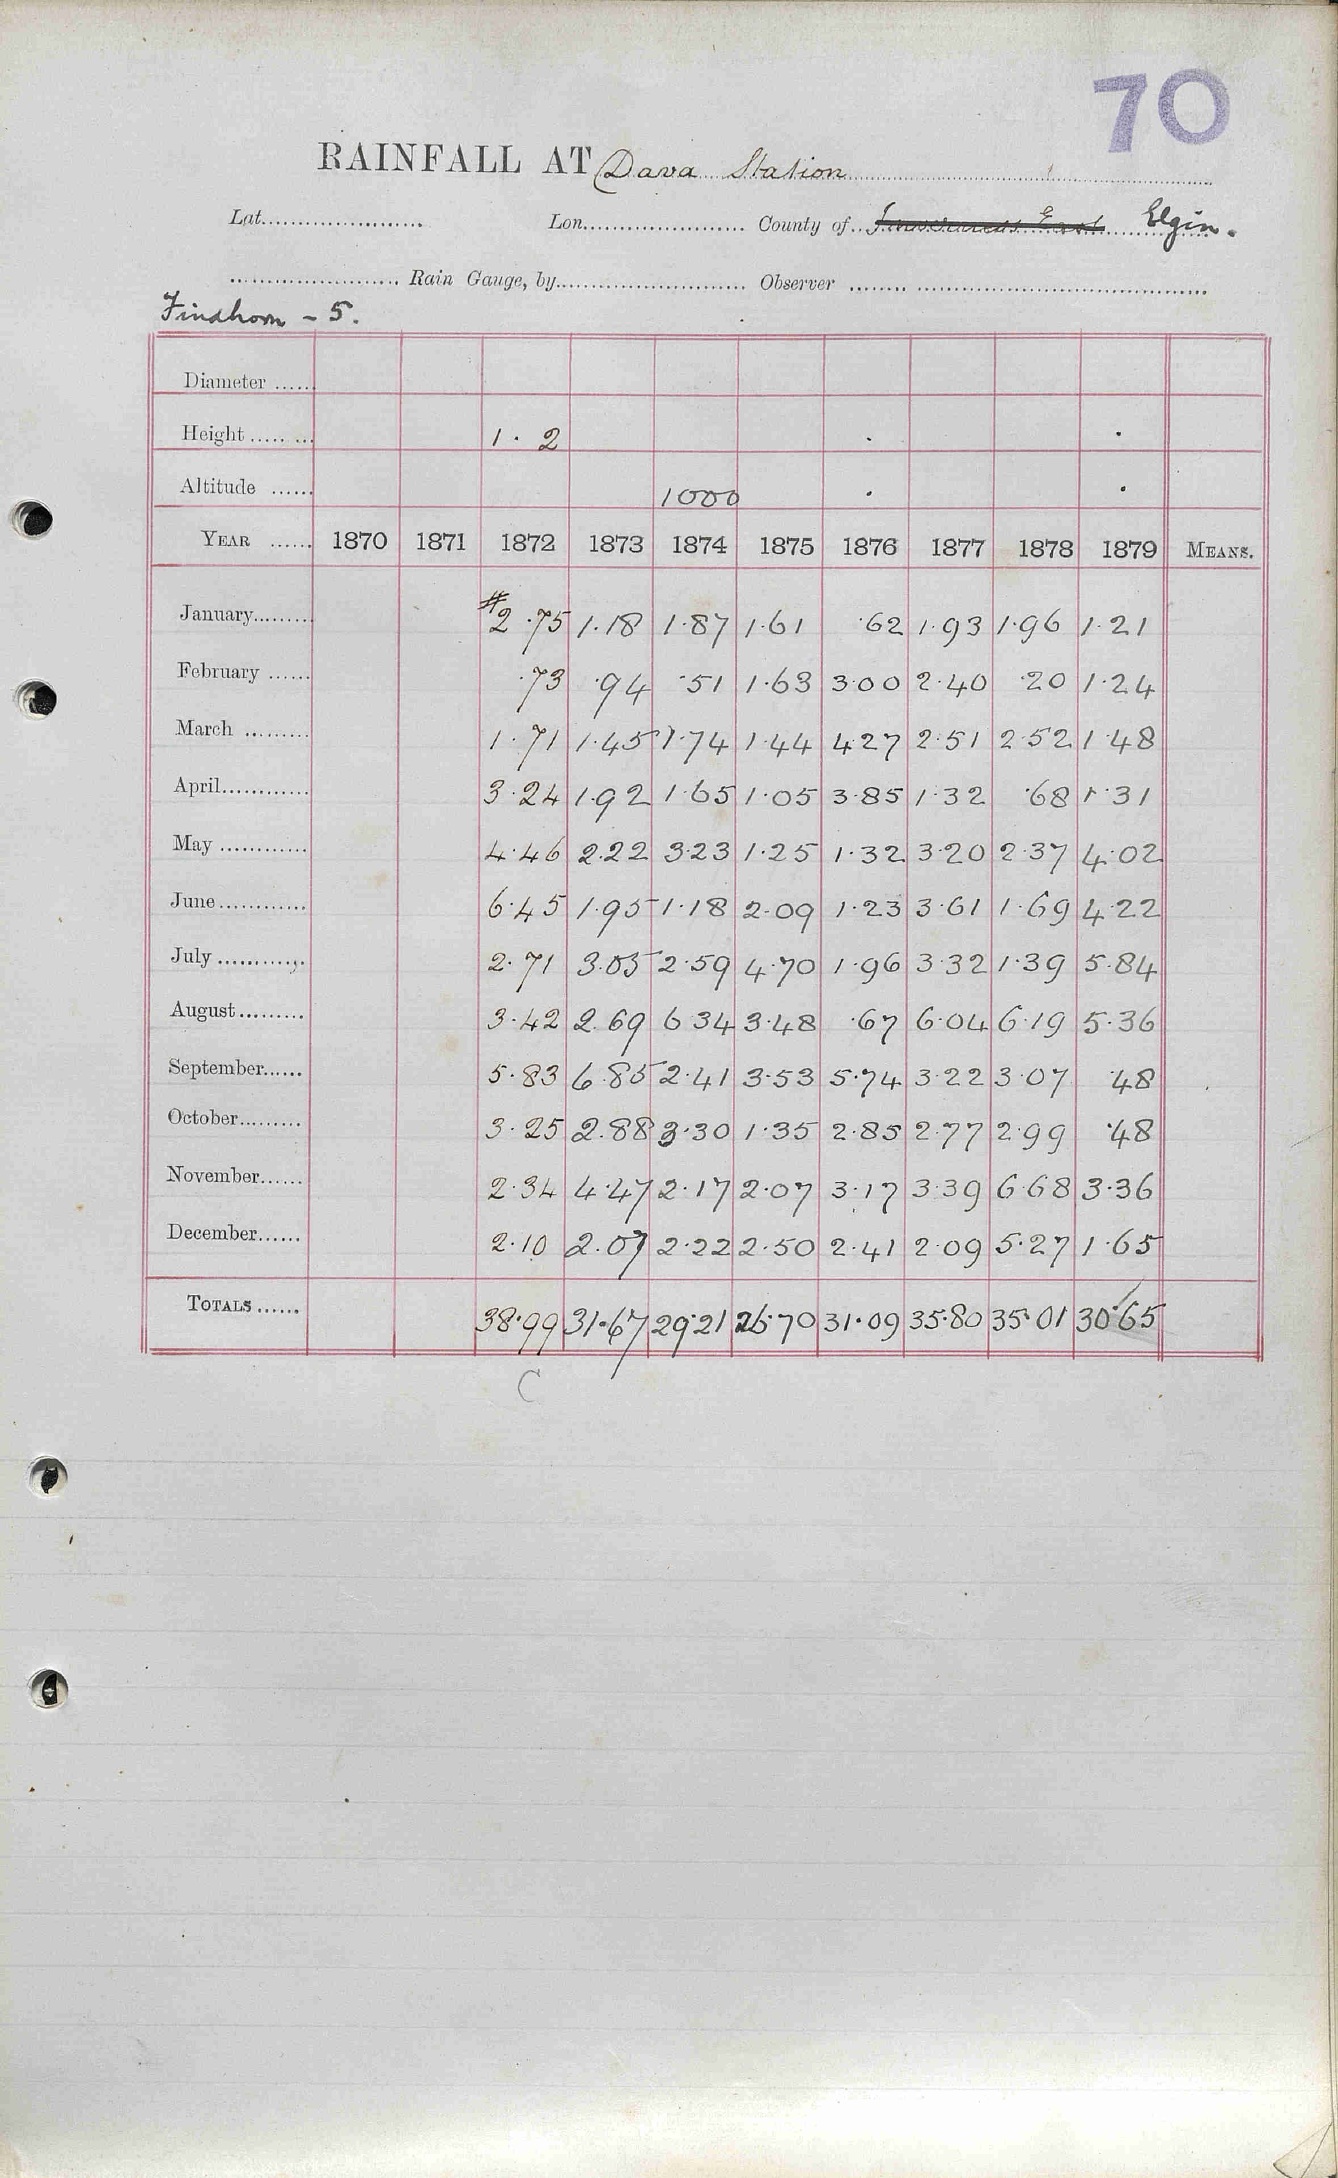 70
RAINFALL AT Dava Station
Lat. Lon. County of Inverness East Elgin.
Rain Gauge, by Observer
Findhorn - 5.
Diameter
Height 1 . 2
Altitude 1000
YEAR 1870 1871 1872 1873 1874 1875 1876 1877 1878 1879 MEANS.
January #2.75 1.18 1.87 1.61 .62 1.93 1.96 1.21
February .73 .94 .51 1.63 3.00 2.40 .20 1.24
March 1.71 1.45 1.74 1.44 4.27 2.51 2.52 1.48
April 3.24 1.92 1.65 1.05 3.85 1.32 .68 1.31
May 4.46 2.22 3.23 1.25 1.32 3.20 2.37 4.02
June 6.45 1.95 1.18 2.09 1.23 3.61 1.69 4.22
July 2.71 3.05 2.59 4.70 1.96 3.32 1.39 5.84
August 3.42 2.69 6.34 3.48 .67 6.04 6.19 5.36
September 5.83 6.85 2.41 3.53 5.74 3.22 3.07 .48
October 3.25 2.88 3.30 1.35 2.85 2.77 2.99 .48
November 2.34 4.47 2.17 2.07 3.17 3.39 6.68 3.36
December 2.10 2.07 2.22 2.50 2.41 2.09 5.27 1.65
TOTALS 38.99 31.67 29.21 26.70 31.09 35.80 35.01 30.65
C